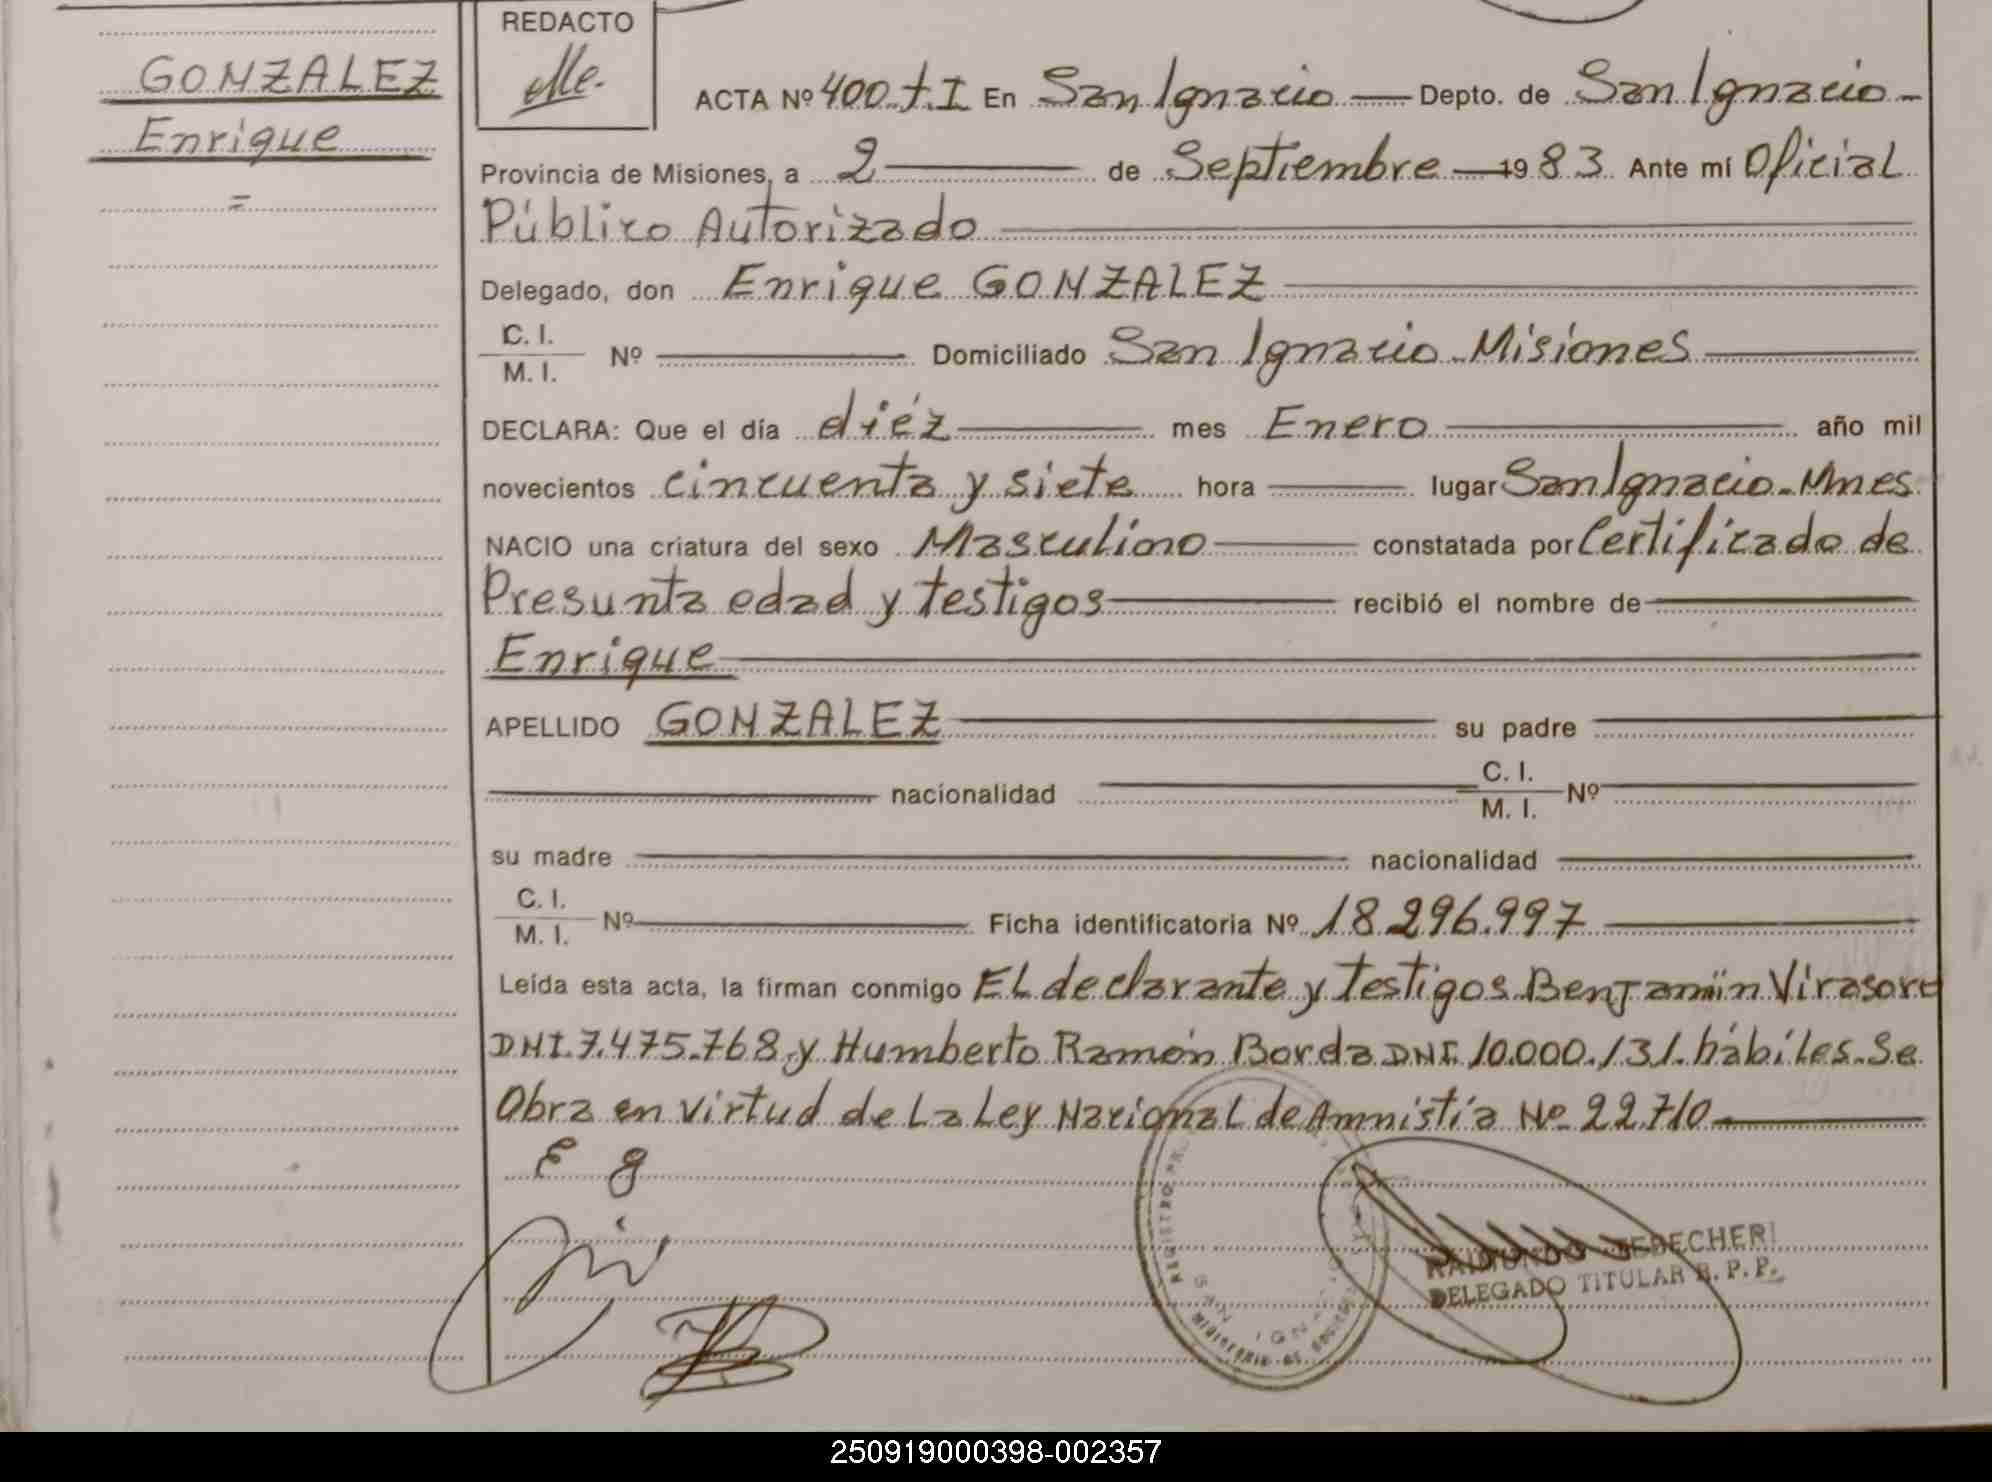 GONZALEZ
Enrique
=
REDACTO
ACTA Nº 400 t.I En San Ignacio Depto. de San Ignacio
Provincia de Misiones, a 2 de Septiembre 1983 Ante mí Oficial
Público Autorizado
Delegado, don Enrique GONZALEZ
C. I.
M. I. Nº Domiciliado San Ignacio Misiones
DECLARA: Que el día diéz mes Enero año mil
novecientos cincuenta y siete hora lugar San Ignacio Mnes.
NACIO una criatura del sexo Masculino constatada por Certificado de
Presunta edad y testigos recibió el nombre de
Enrique
APELLIDO GONZALEZ su padre
nacionalidad C. I.
M. I. Nº
su madre nacionalidad
C. I.
M. I. Nº Ficha identificatoria Nº 18.296.997
Leída esta acta, la firman conmigo EL declarante y testigos Benjamín Virasoro
DNI.7.475.768 y Humberto Ramón Borda DNI.10.000.131.hábiles. Se
Obra en virtud de La Ley Nacional de Amnistía Nº 22.710
E g
SAN IGNACIO
DELEGADO TITULAR R. P. P.
250919000398-002357